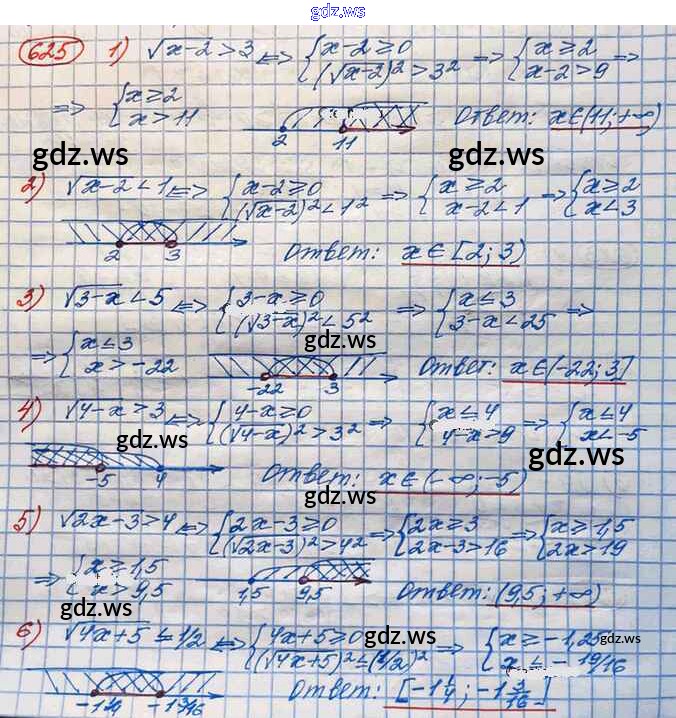 gdz.ws
625 1) √x-2 > 3 <=> {x-2 ≥ 0 (√x-2)² > 3² => {x ≥ 2 x-2 > 9 =>
=> {x ≥ 2 x > 11 2 11 Ответ: x∈(11; +∞)
gdz.ws gdz.ws
2) √x-2 < 1 <=> {x-2 ≥ 0 (√x-2)² < 1² => {x ≥ 2 x-2 < 1 => {x ≥ 2 x < 3
2 3 Ответ: x∈[2; 3)
3) √3-x < 5 <=> {3-x ≥ 0 (√3-x)² < 5² => {x ≤ 3 3-x < 25 =>
gdz.ws
=> {x ≤ 3 x > -22 -22 3 Ответ: x∈(-22; 3]
4) √4-x > 3 <=> {4-x ≥ 0 (√4-x)² > 3² => {x ≤ 4 4-x > 9 => {x ≤ 4 x < -5
gdz.ws gdz.ws
-5 4 Ответ: x∈(-∞; -5)
gdz.ws
5) √2x-3 > 4 <=> {2x-3 ≥ 0 (√2x-3)² > 4² => {2x ≥ 3 2x-3 > 16 => {x ≥ 1,5 2x > 19
=> {x ≥ 1,5 x > 9,5 1,5 9,5 Ответ: (9,5; +∞)
gdz.ws gdz.ws
6) √4x+5 ≤ 1/2 <=> {4x+5 ≥ 0 (√4x+5)² ≤ (1/2)² => {x ≥ -1,25 x ≤ -19/16
gdz.ws
-1 1/4 -1 3/16 Ответ: [-1 1/4; -1 3/16]
gdz.ws